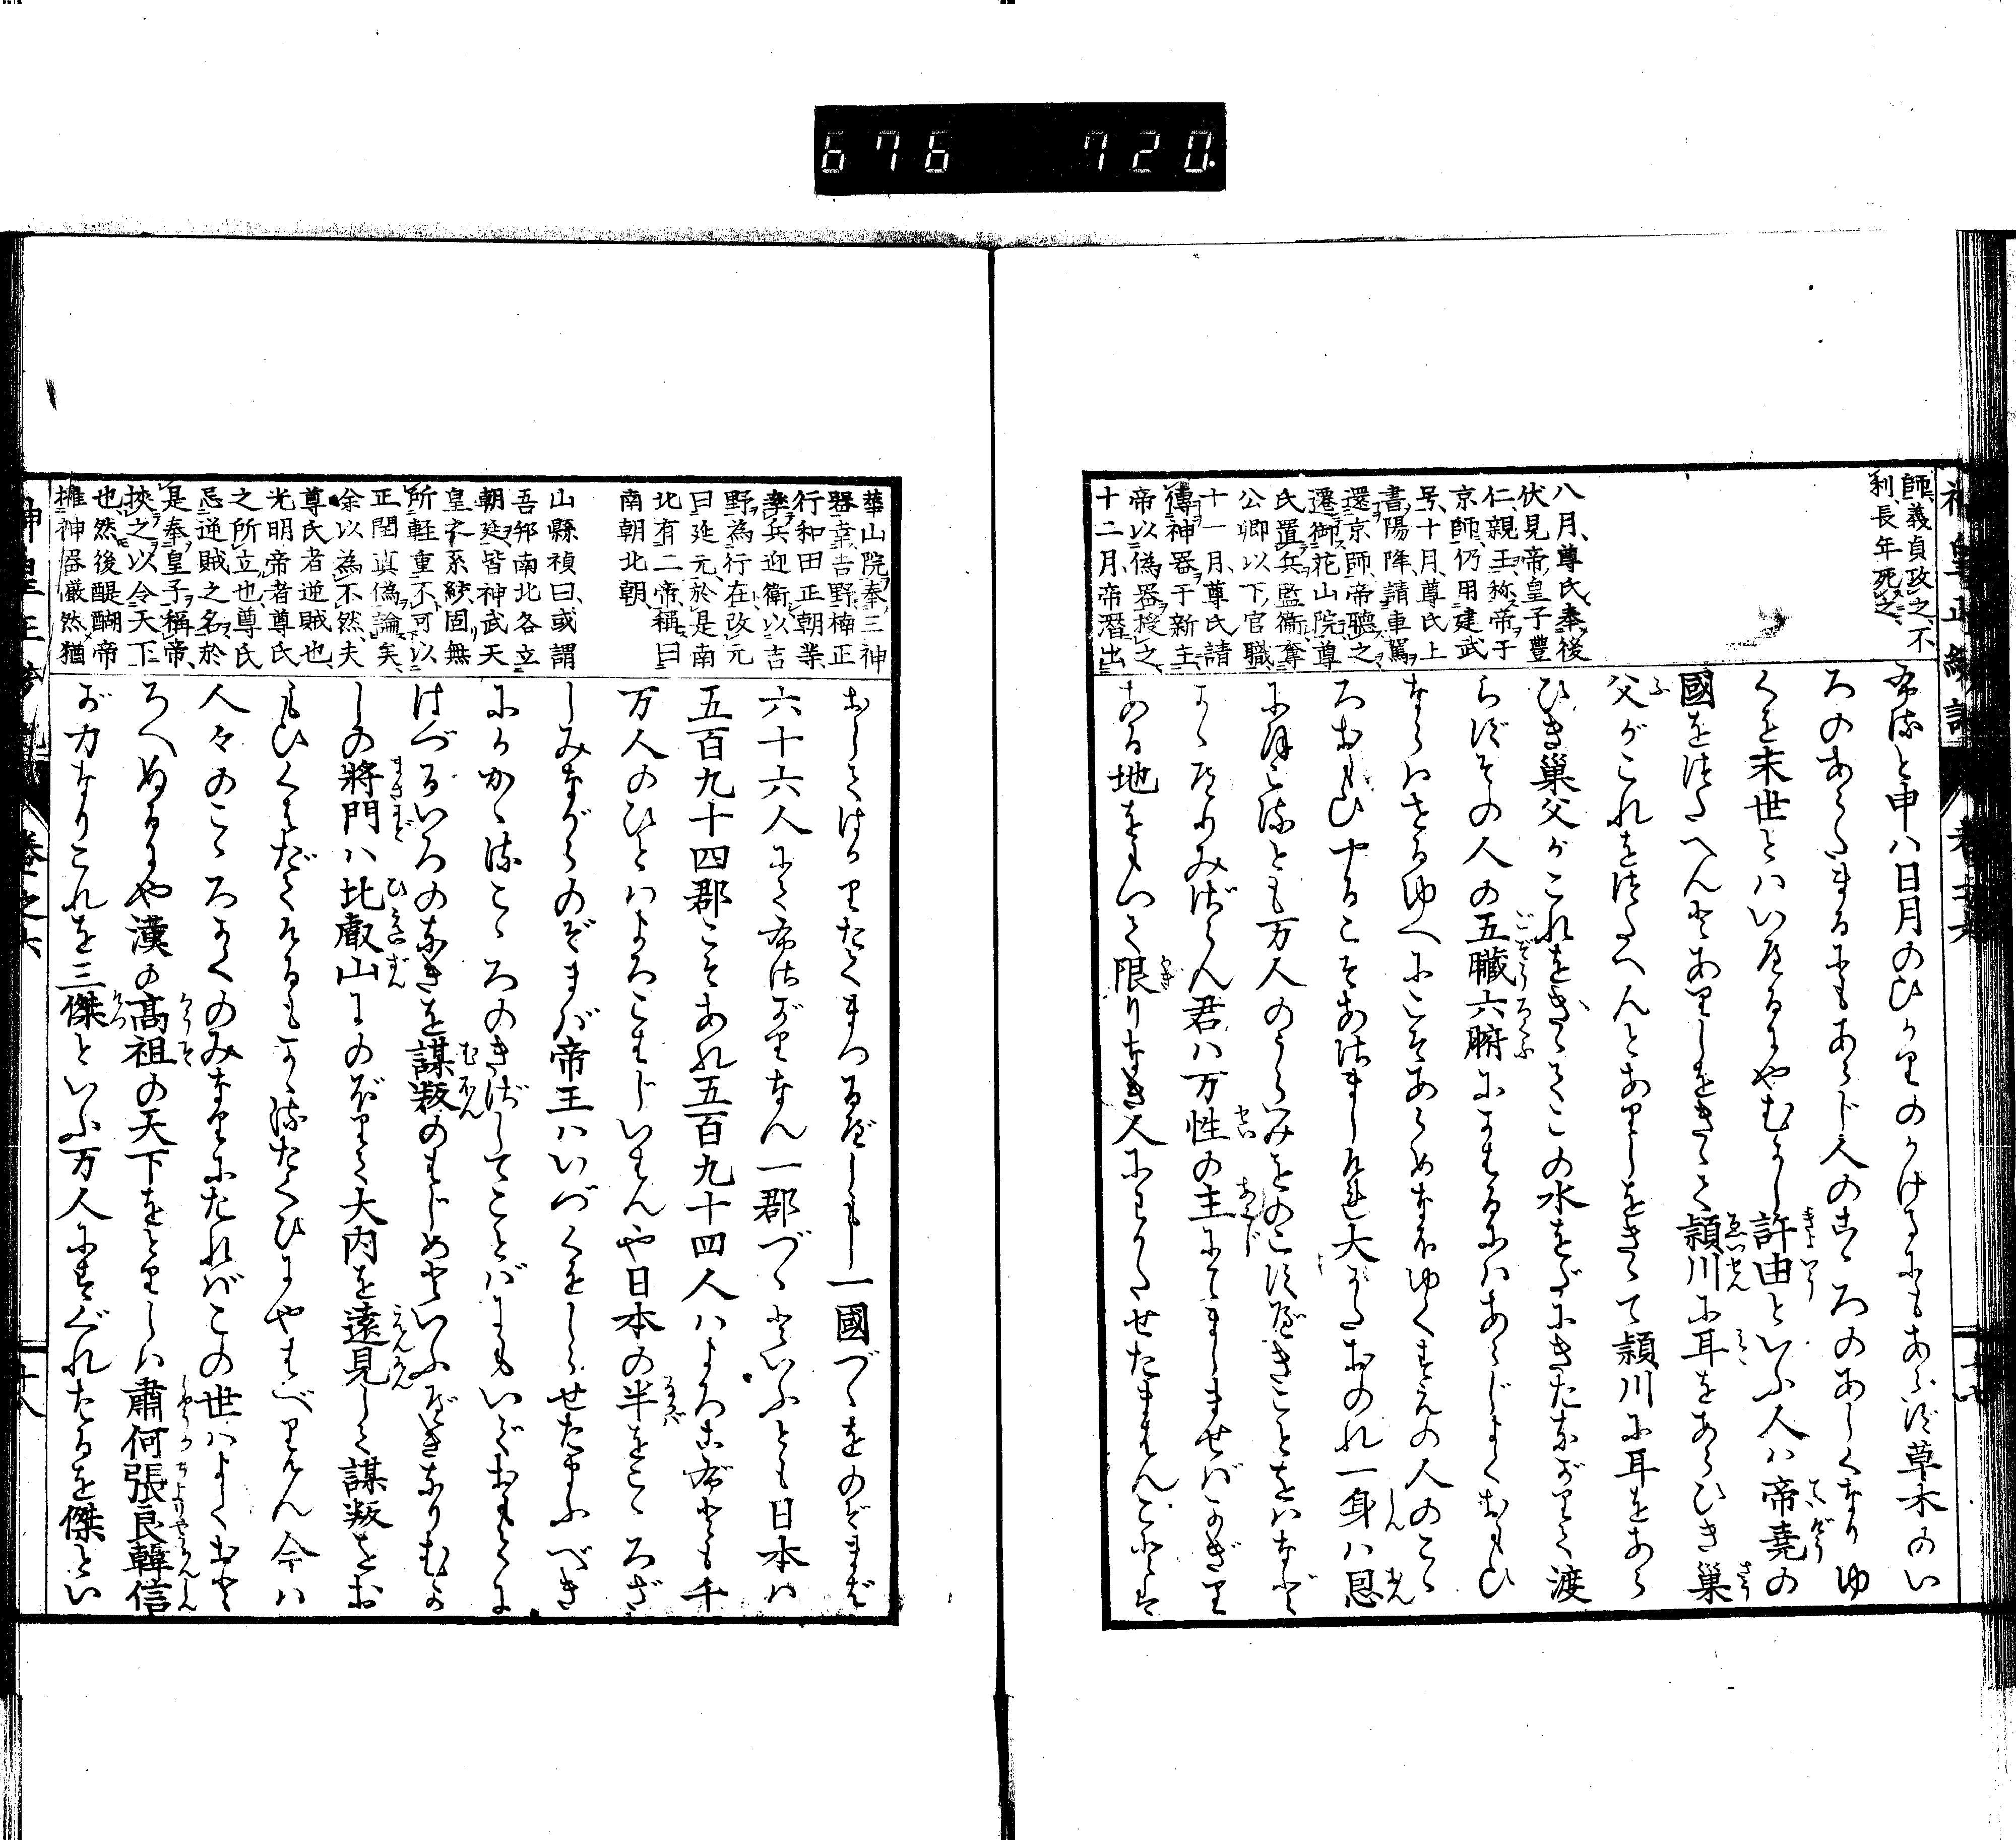 676 720
師、義貞攻之、不
利、長年死之、
八月、尊氏奉後
伏見帝皇子豊
仁親王、称帝于
京師、仍用建武
号、十月、尊氏上
書陽降、請車駕
還京師、帝聴之
遷御花山院、尊
氏置兵監衛、奪
公卿以下官職
十一月、尊氏請
傳神器于新主、
帝以偽器授之、
十二月、帝潜出
希流と申ハ日月のひかりのかけるにもあらず草木のい
ろのあらたまるにもあらじ人のこゝろのあしくなりゆ
くを末世とハいへるにやむかし許由といふ人ハ帝堯の
國をつたへんとありしをきゝて潁川に耳をあらひき巢
父がこれをつたへんとありしをきゝて潁川に耳をあら
ひき巢父がこれをきゝてこの水をだにきたながりて渡
らずその人の五臓六腑にかはるにハあらじよくおもひ
ならハせるゆへにこそあらめなほゆくすゑの人のこゝ
ろおもひやるこそあさましけれ大かたおのれ一身ハ恩
にほこるとも万人のうらみをのこすべきことをハなど
かゝへりみざらん君ハ万性の主にてましませバかぎり
ある地をもいて限りなき人にわかたせたまはんことハ
華山院、奉三神
器幸吉野、楠正
行和田正朝等
挙兵迎衛、以吉
野為行在、改元
曰延元、於是南
北有二帝、稱曰
南朝北朝
山縣禎曰、或謂
吾邦南北各立
朝廷、皆神武天
皇之系統、固無
所軽重、不可以
正閏真偽論矣、
余以為不然、夫
尊氏者逆賊也、
光明帝者尊氏
之所立也、尊氏
忌逆賊之名、於
是奉皇子稱帝、
挾之以令天下
也、然後醍醐帝
擁神器、厳然猶
おしてはかりたてまつるべしもし一國づゝをのぞまば
六十六人にてふさがりなん一郡づゝといふとも日本ハ
五百九十四郡こそあれ五百九十四人ハよろこぶとも千
万人のひとハよろこばじいはんや日本の半をこゝろざ
しみながらのぞまバ帝王ハいづくをしらせたまふべき
にかかゝるこゝろのきざしてことバにもいでおもてに
はづるいろのなきを謀叛のはじめといふべきなりむか
しの将門ハ比叡山にのぼりて大内を遠見して謀叛をお
もひくはだてけるもかゝるたぐひにやはべりけん今ハ
人々のこゝろかくのみなりにたれバこの世ハよくおと
ろへぬるにや漢の高祖の天下をとりしハ蕭何張良韓信
が力なりこれを三傑といふ万人にすぐれたるを傑とい